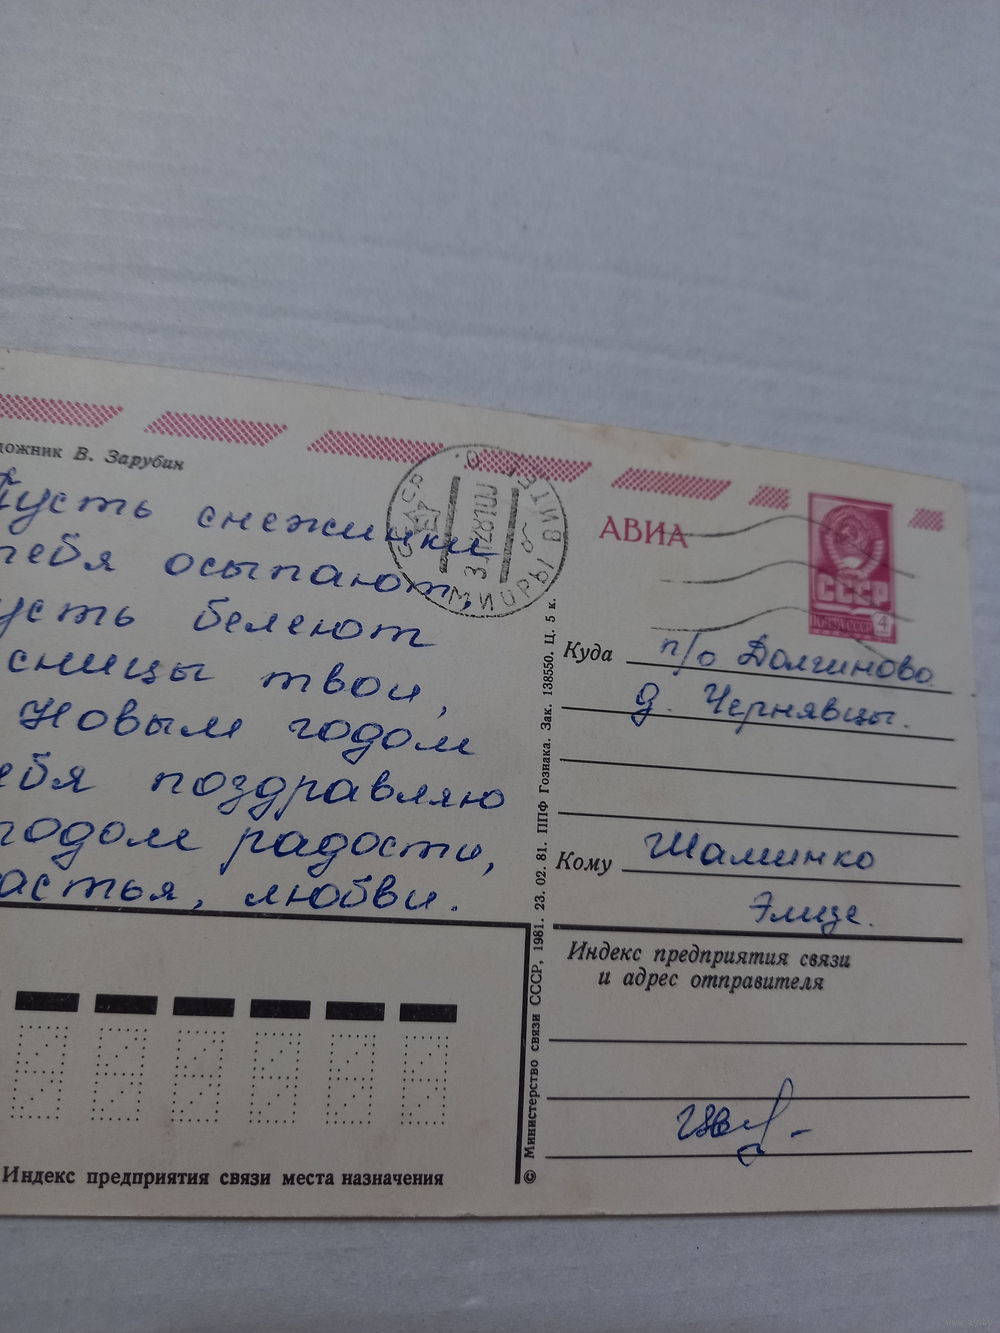 дожник В. Зарубин
Пусть снежинки
тебя осыпают,
усть белеют
сницы твои,
Новым годом
ебя поздравляю
годом радости,
астья, любви.
АВИА
СССР
ПОЧТА СССР
4
Куда п/о Долгиново
д. Чернявцы.
Кому Шаминко
Элизе.
Индекс предприятия связи
и адрес отправителя
Индекс предприятия связи места назначения
© Министерство связи СССР, 1981. 23. 02. 81. ППФ Гознака. Зак. 138550. Ц. 5 к.